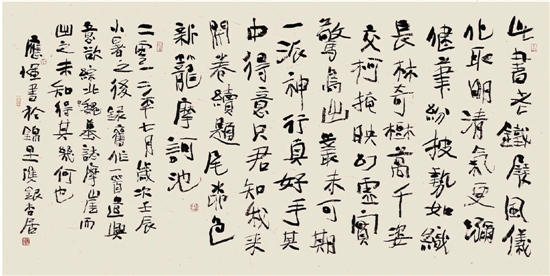 此書老鐵展風儀
化取明清氣更瀰
健筆紛披勢如織
長林奇樾萬千姿
交柯掩映幻虛實
驚鳥出叢未可期
一派神行真好手其
中得意只君知我來
開卷續題尾色
新籠摩訶池
二零一二年七月歲次壬辰
小暑之後錄舊作一首適興
意欲綜北魏墓誌摩崖而
出之未知得其幾何也
書於錦里雙銀杏居